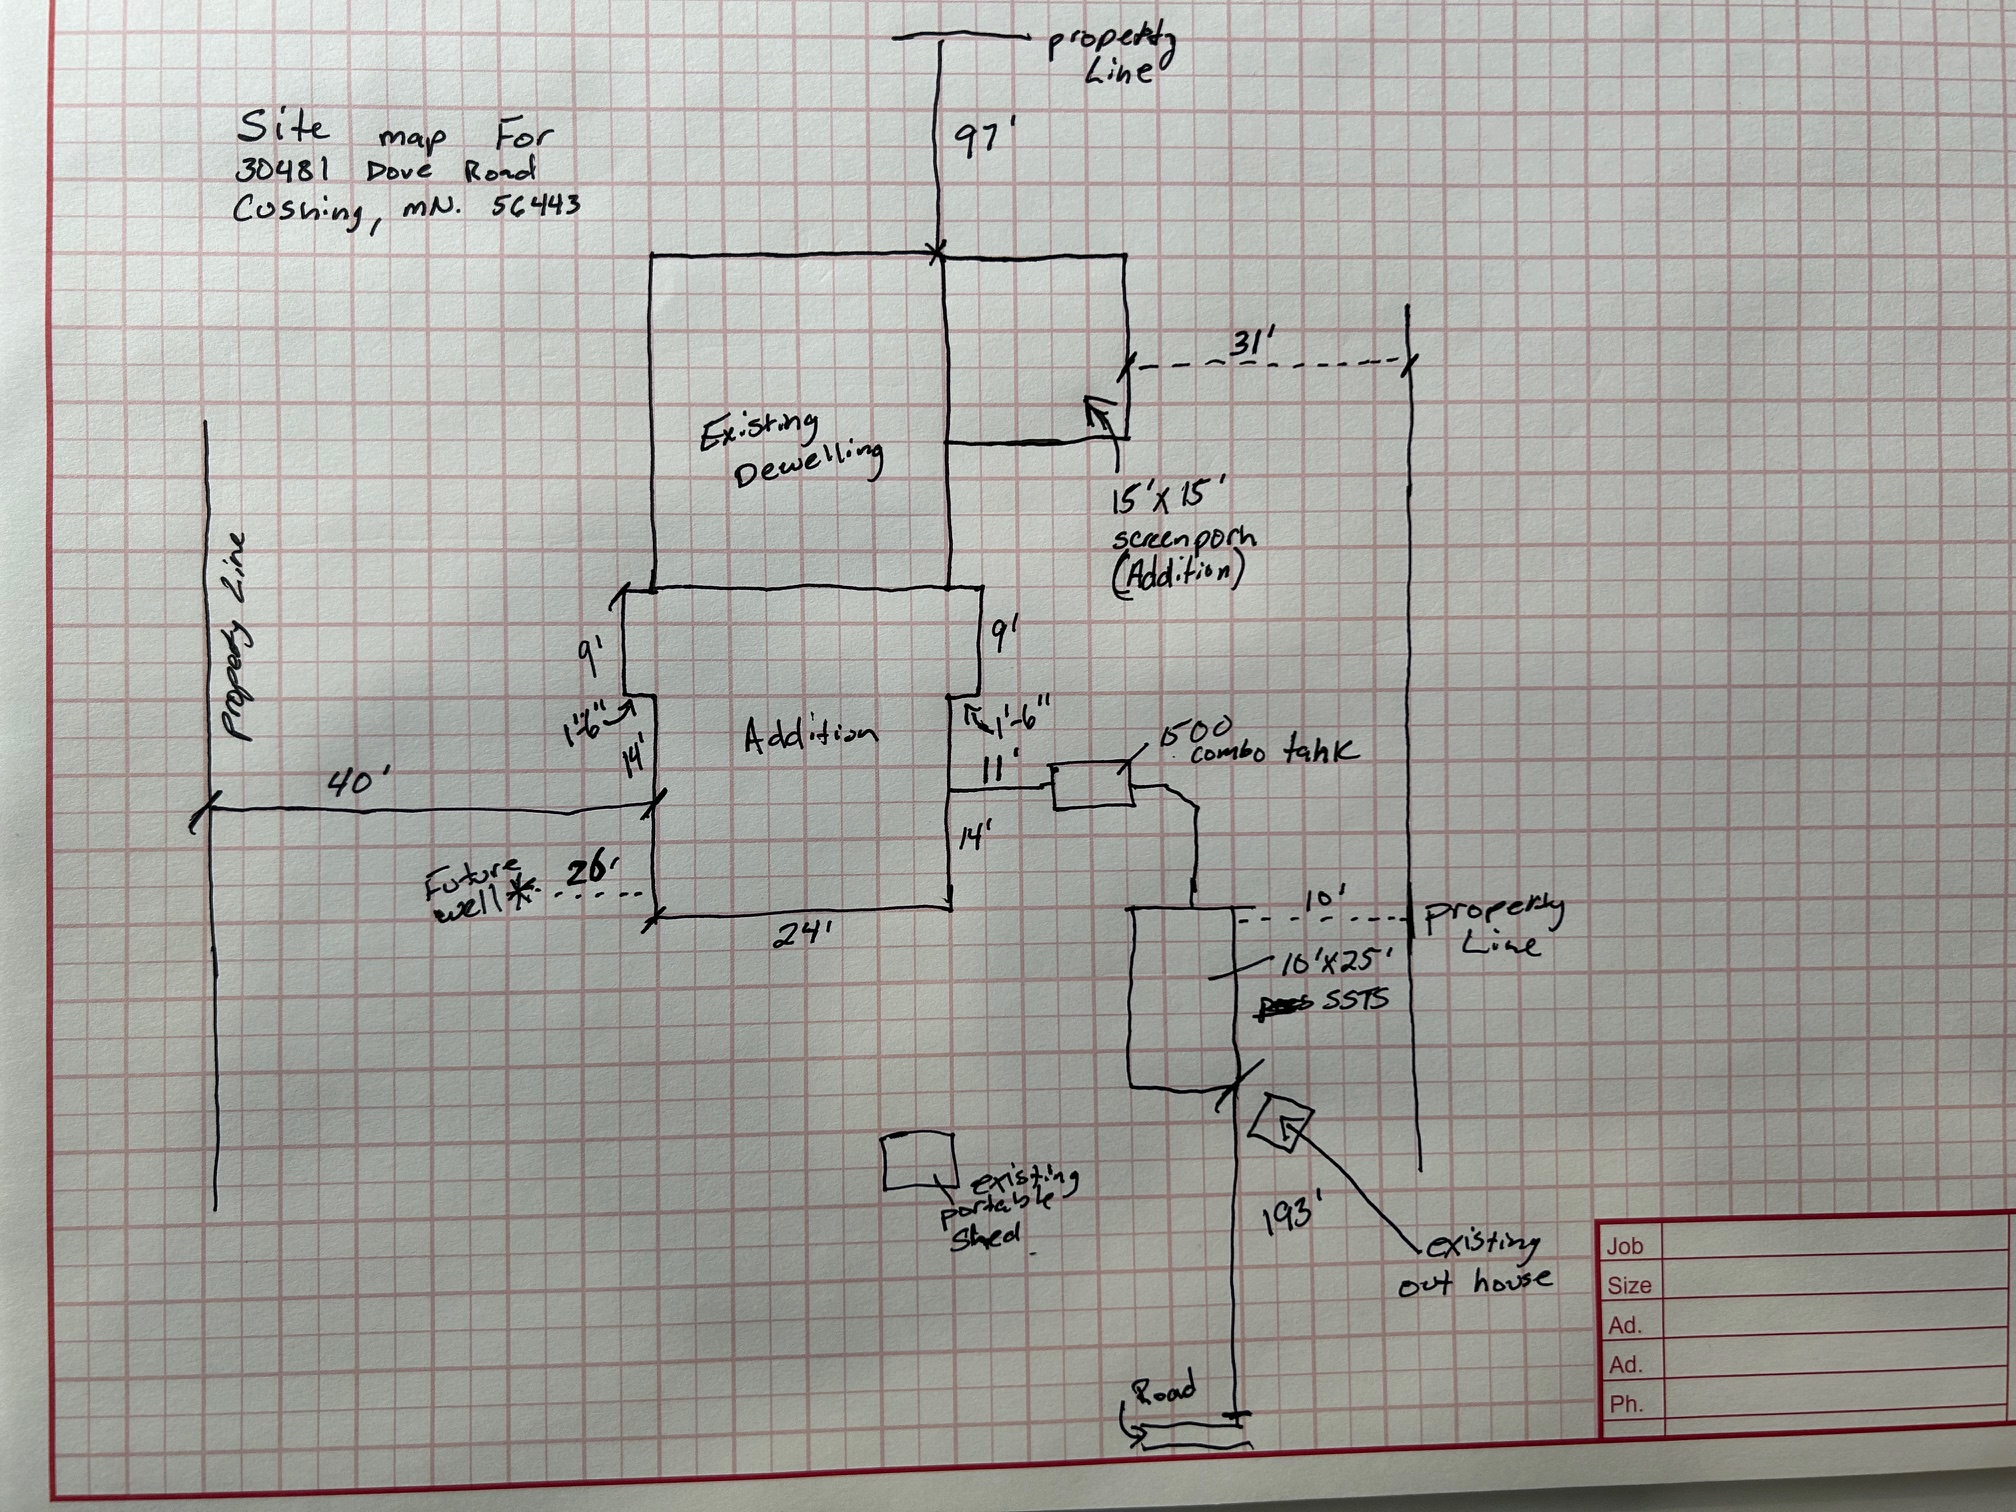 property
Line
97'
Site map For
30481 Dove Road
Cushing, MN. 56443
31'
Existing
Dewelling
15' x 15'
screenporh
(Addition)
Property Line
9'
9'
1'6"
1'-6"
14'
Addition
11'
1500
combo tank
40'
14'
Future
well
26'
24'
10'
property
Line
10'x25'
SSTS
existing
portable
Shed.
193'
existing
out house
Road
Job
Size
Ad.
Ad.
Ph.